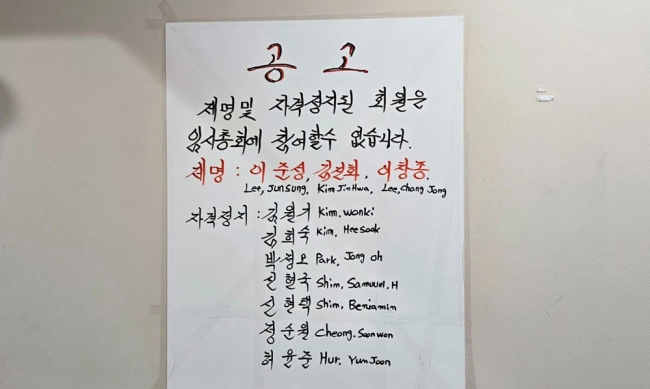 공 고
제명및 자격정지된 회원은
임시총회에 참여할수 없습니다.
제명 : 이준성, 김진화, 이창종
Lee, JunSung, Kim JinHwa, Lee, Chang Jong
자격정지 : 김원기 Kim, wonki
김희숙 Kim, HeeSook
박정오 Park, Jong oh
신현국 Shim, Samuuel, H
신현택 Shim, Benjamin
정순원 Cheong, Soonwon
허윤준 Hur, YunJoon